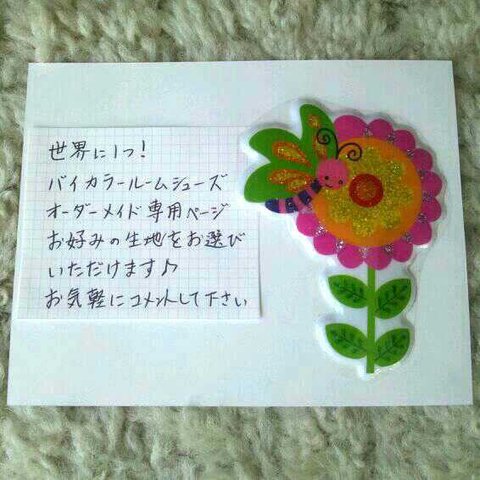 世界に1つ!
バイカラールームシューズ
オーダーメイド専用ページ
お好みの生地をお選び
いただけます♪
お気軽にコメントして下さい